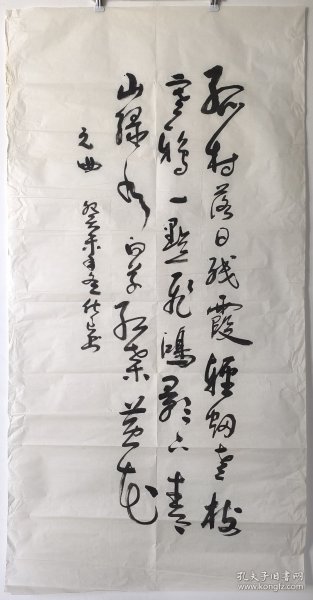 孤村落日残霞轻烟老树
寒鸦一点飞鸿影下青
山绿水白草红叶黄花
元曲 癸未年
孔夫子旧书网
www.kongfz.com